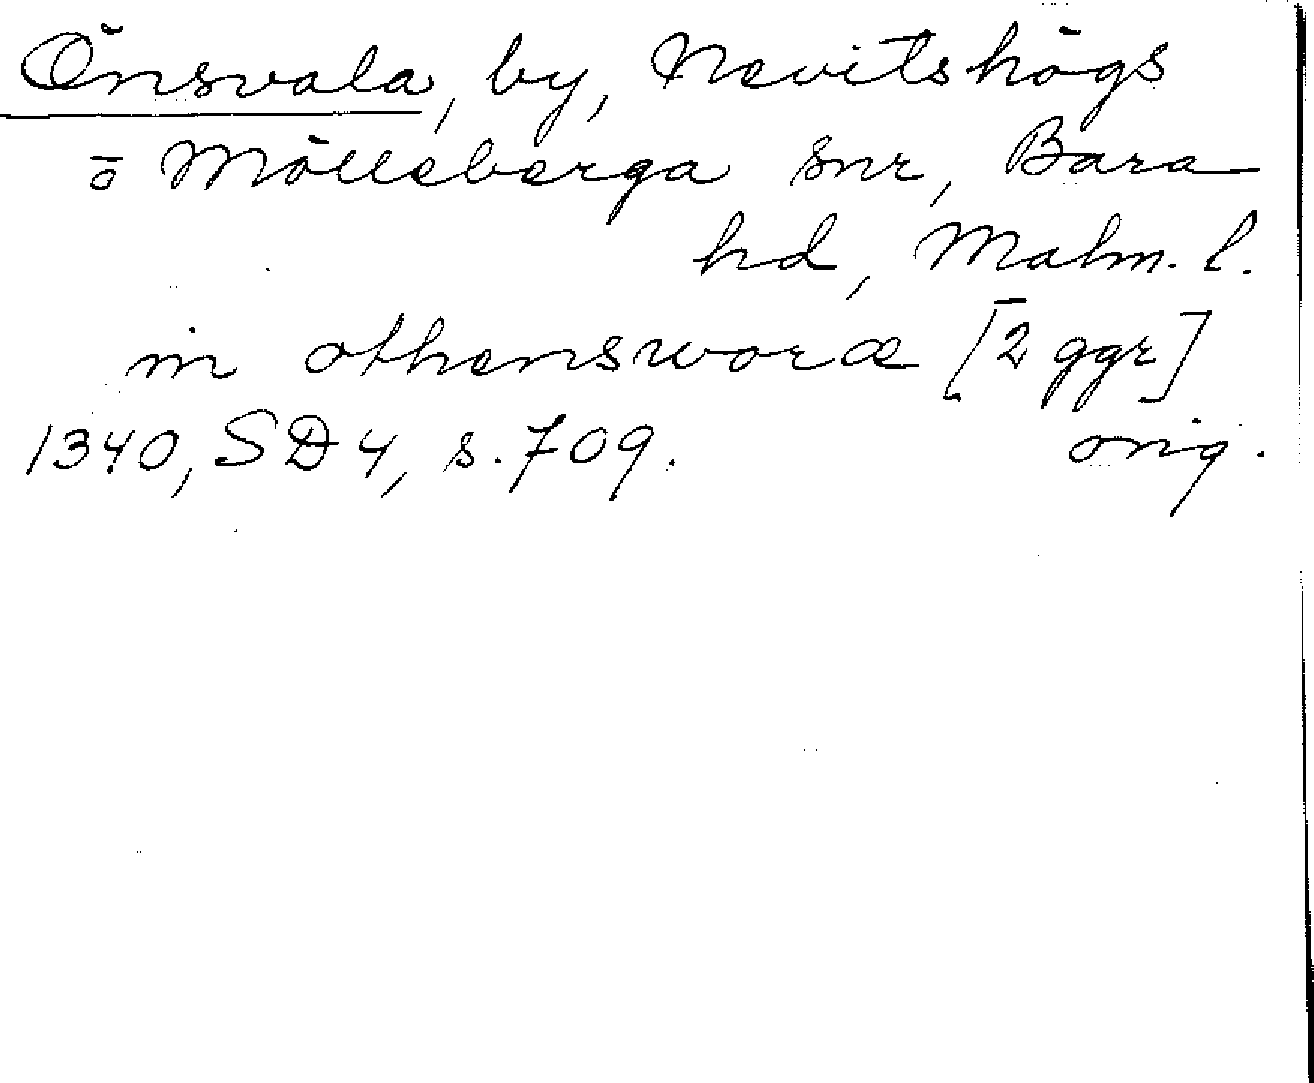 Önsvala, by, Nevitshögs
o Mölleberga snr, Bara
hd, Malm. l.
in othensworæ [2 ggr]
1340, SD 4, s. 709. orig.